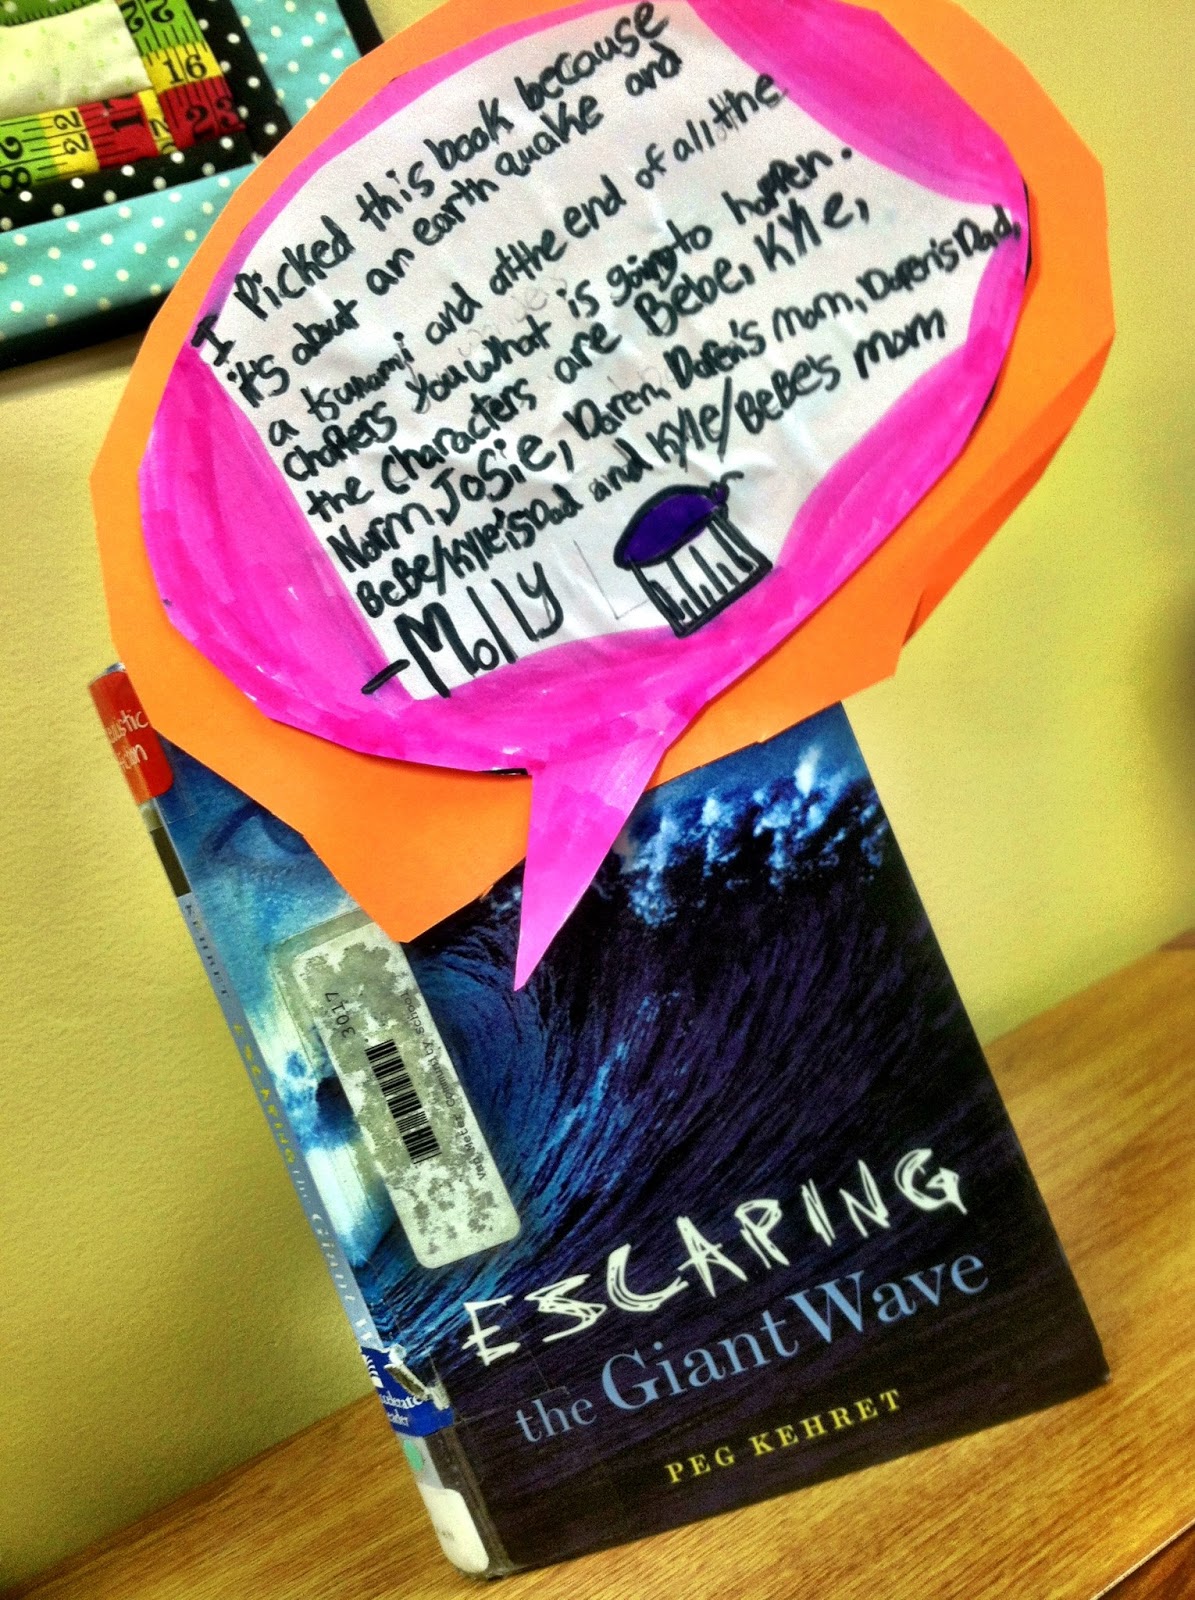 16
22
22
17
23
28
I Picked this book because
it's about an earth quake and
a tsunami and at the end of all the
chapters you what is going to happen.
the Characters are Bebe, Kyle,
Norm, Josie, Daren, Daren's mom, Daren's Dad,
BeBe/Kyle's Dad and Kyle/BeBe's mom
-Molly
3017
KEHRET ESCAPING the Giant W
ESCAPING
the Giant Wave
PEG KEHRET